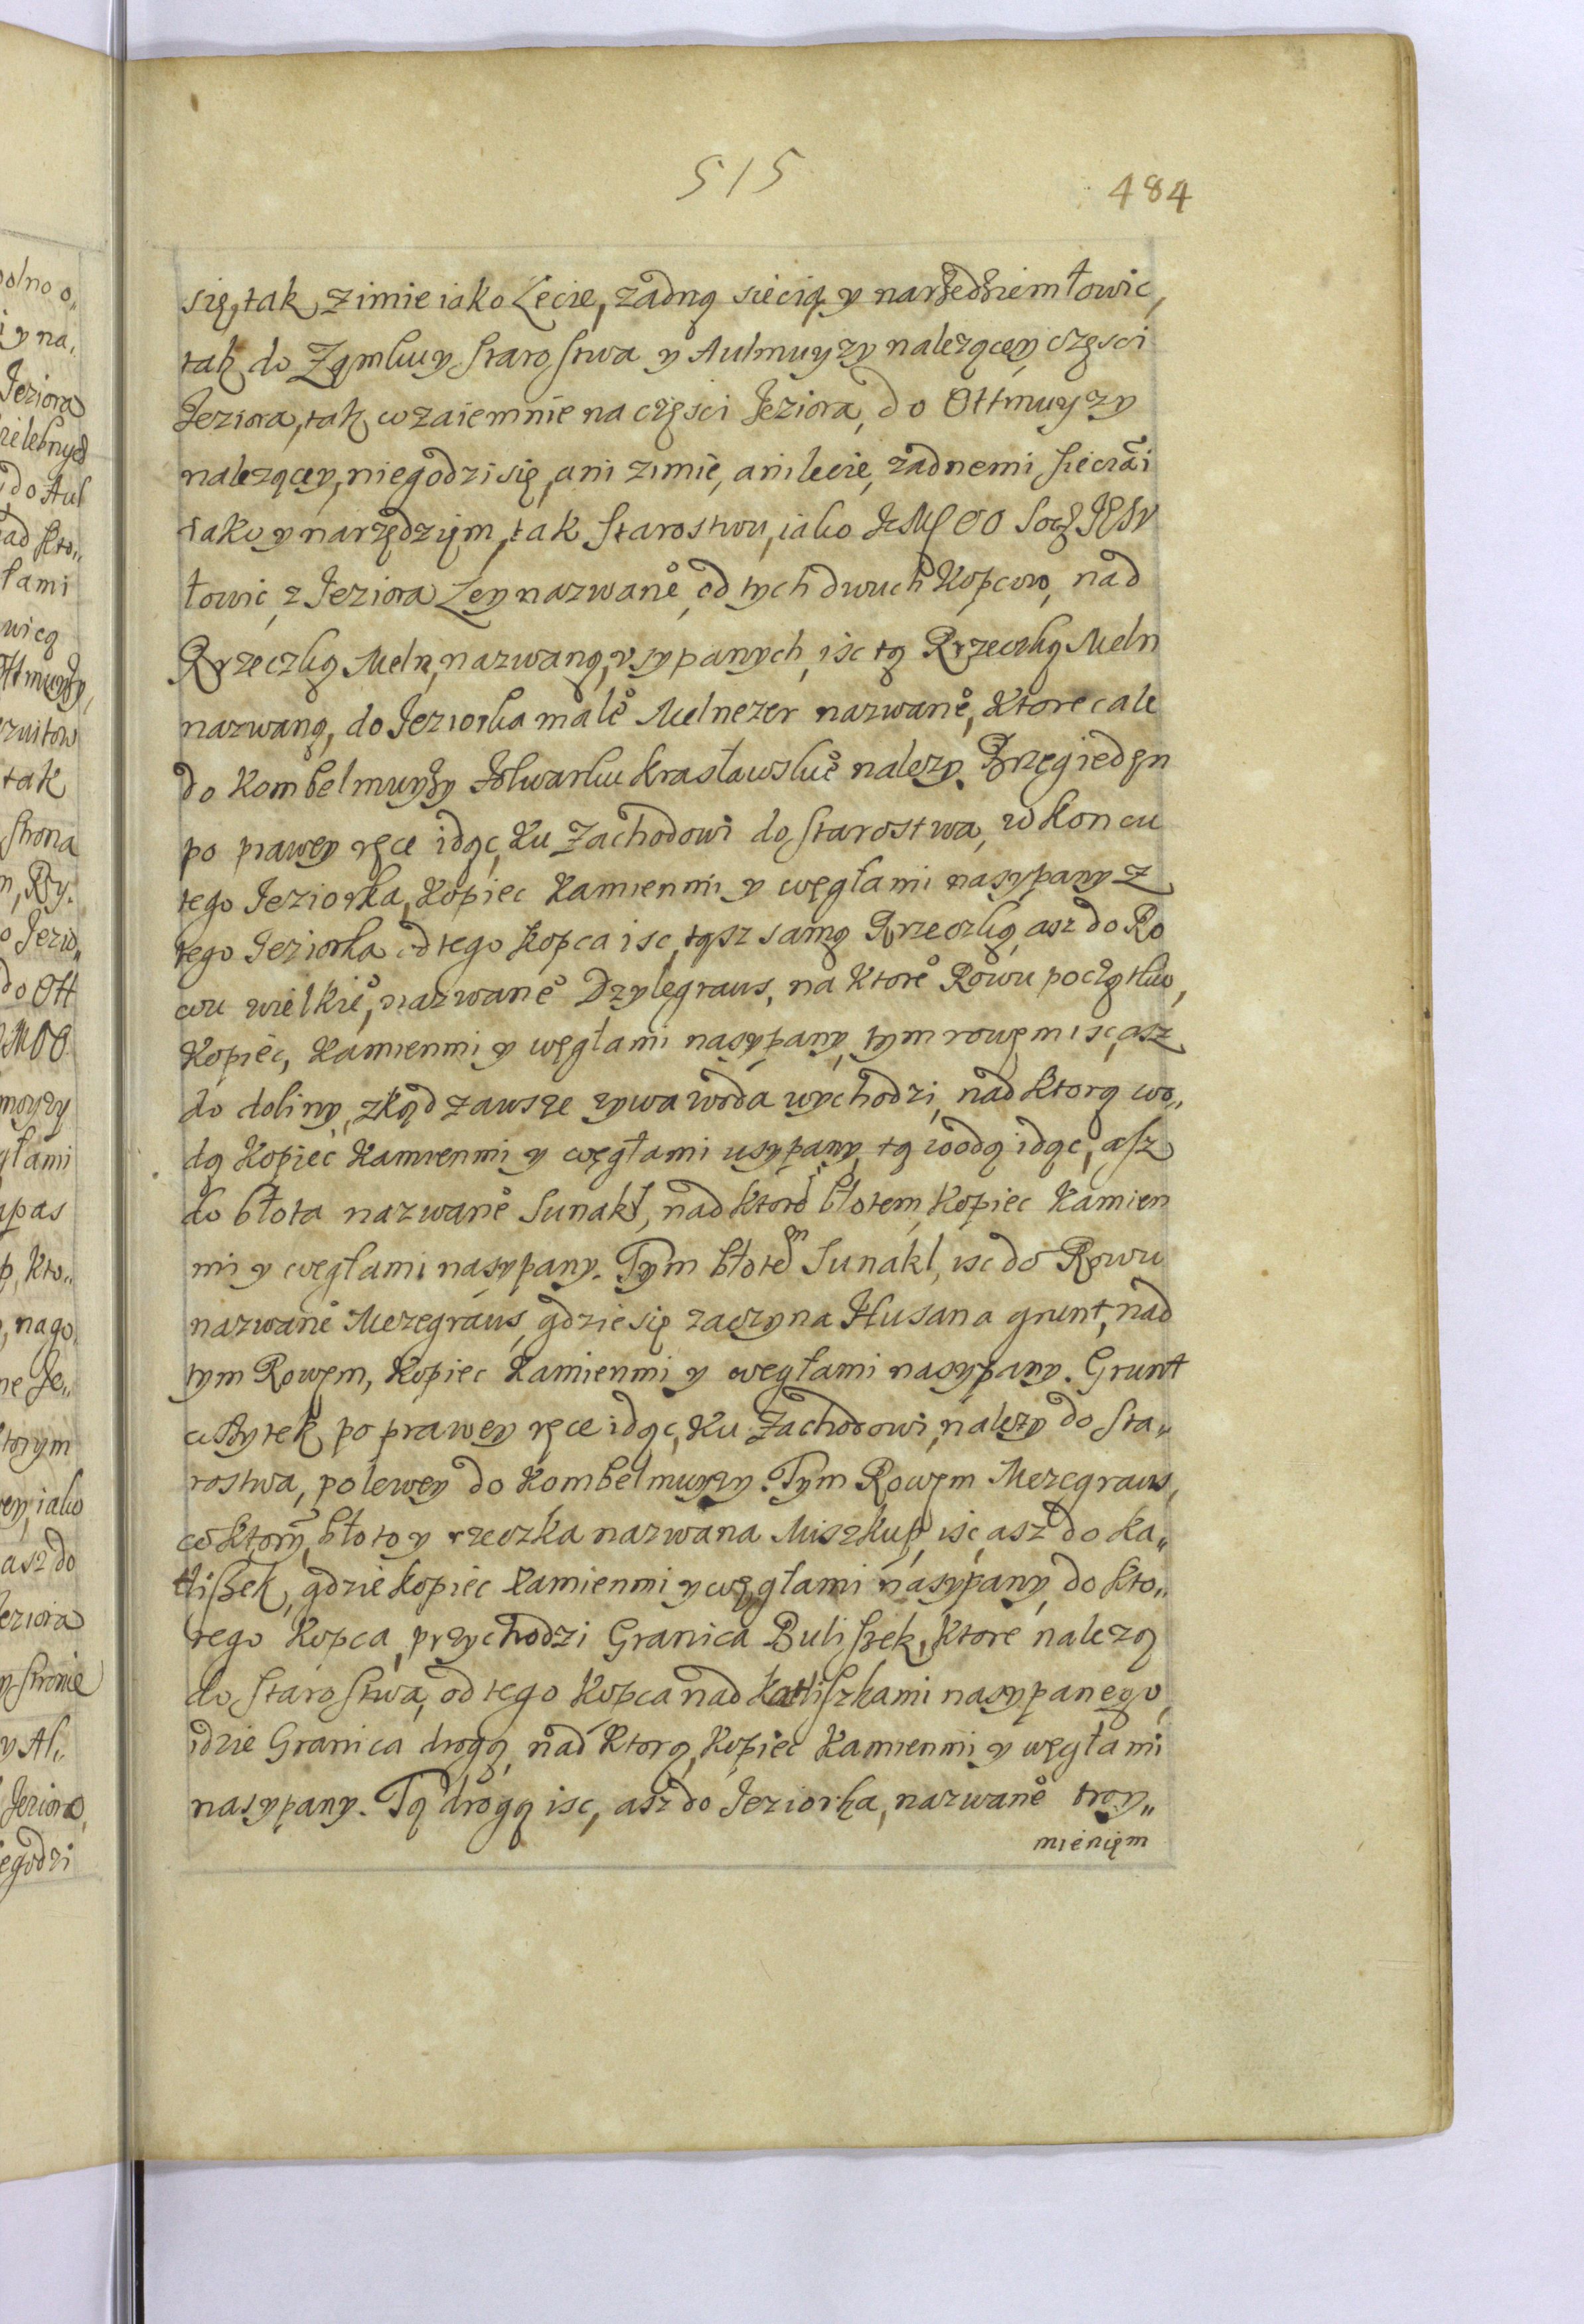 515
484
się, tak zimie iako Lecie, żadną siecią y narzędziem łowic,
tak do Zamkuy Starostwa y Aulmuyzy nalezącey częsci
Jeziora, tak wzaiemnie na częsci Jeziora, do Ottmuyzy
nalezącey, niegodzi się, ani zimie, ani lecie, żadnemi sieciāi
iako y narzędzięm, tak Starostwu, iako OO Soc
łowić, z Jeziora Ley nazwane͛, od tych dwuch Kopcow, nad
Rzeczką Meln, nazwaną, usypanych, isc tą Rzeczką Meln
nazwaną, do Jeziorka małe͛ Melnezer nazwane͛, Ktore cale
do Kombelmuyzy Folwarku Krasławskie͛ nalezy. Brzeg iedęn
po prawey ręce idąc, Ku Zachodowi do Starostwa, w Koncu
tego Jeziorka, Kopiec Kamienmi y węgłami nasypany z
tego Jeziorka od tego Kopca isc, tąsz samą Rzeczką, asz do Ro
wu wielkie͛, nazwane͛ Dzylegraws, na Ktore͛ Rowu początku,
Kopiec, Kamienmi y węgłami nasypany, tym rowęm isc, asz
do doliny, zkąd zawsze zywa woda wychodzi, nad Ktorą wo„
dą Kopiec Kamienmi y węgłami usypany, tą wodą idąc, asz
do błota nazwane͛ Sunakl, nad Ktore͛ błotem, Kopiec Kamien
mi y węgłami nasypany. Tym błotem Sunakl, isc do Rowu
nazwane͛ Mezegraws, gdzie się zaczyna Husana grunt, nad
tym Rowęm, Kopiec Kamienmi y węgłami nasypany. Grunt
wszytek po prawey ręce idąc, Ku Zachodowi, nalezy do Sta„
rostwa, po lewey do Kombelmuyzy. Tym Rowęm Mezegraws,
w Ktorym, błoto y rzeczka nazwana Miszkup, isc, asz do Ka„
tliszek, gdzie Kopiec Kamienmi y węgłami nasypany, do Kto„
rego Kopca, przychodzi Granica Buliszek, Ktore nalezą
do Starostwa, od tego Kopca nad Katliszkami nasypanego,
idzie Granica drogą, nad Ktorą, Kopiec Kamienmi y węgłami
nasypany. Tą drogą isc, asz do Jeziorka, nazwane͛ troy„
mienięm